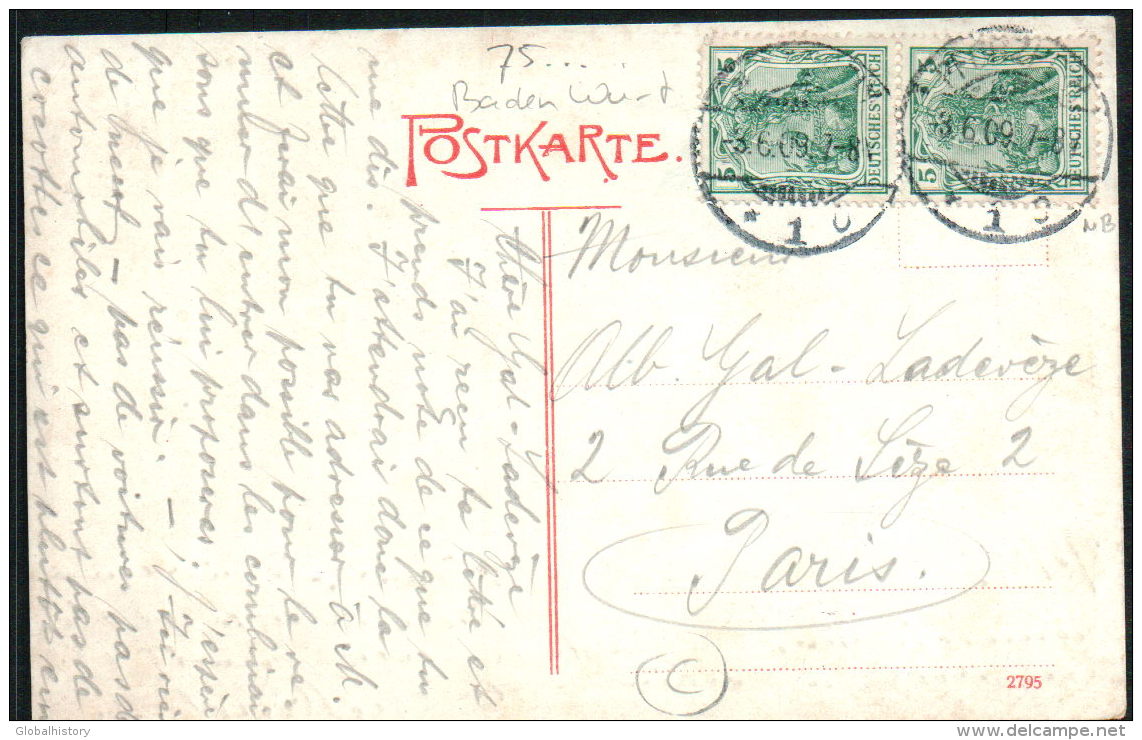 75....
Baden Würt
POSTKARTE.
5 5
DEUTSCHES REICH
5 5
DEUTSCHES REICH
-3.6.09. 7-8
* 1 c
-3.6.09. 7-8
* 1 c
NB
Monsieur
Alb. Gal-Ladevèze
2 Rue de Sèze 2
Paris.
C
2795
Chère Gal-Ladevèze
J'ai reçu ta lettre et
prends note de ce que tu
me dis. J'attendrai donc la
lettre que tu vas adresser à M.
et ferai mon possible pour le re-
d'entrer dans les combinai
sons que tu lui proposeras. J'espèr
que je vais réussir. —
de neuf — pas de voitures pas d
automobiles et surtout pas de
ce qui est plutôt en
Globalhistory
delcampe.net